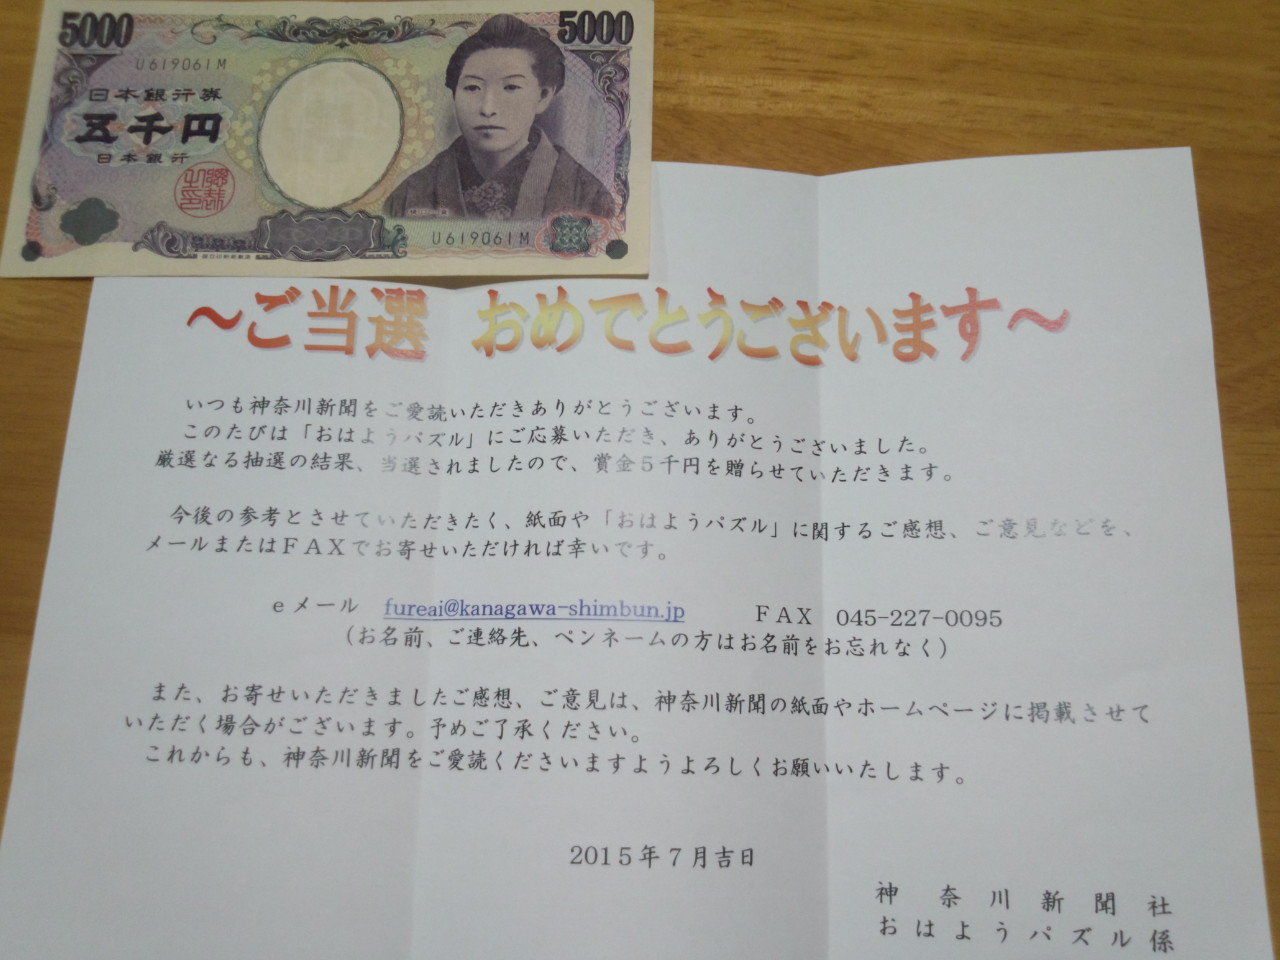 5000
5000
U619061M
日本銀行券
五千円
日本銀行
U619061M
～ご当選 おめでとうございます～
いつも神奈川新聞をご愛読いただきありがとうございます。
このたびは「おはようパズル」にご応募いただき、ありがとうございました。
厳選なる抽選の結果、当選されましたので、賞金５千円を贈らせていただきます。
今後の参考とさせていただきたく、紙面や「おはようパズル」に関するご感想、ご意見などを、
メールまたはＦＡＸでお寄せいただければ幸いです。
ｅメール fureai@kanagawa-shimbun.jp ＦＡＸ 045-227-0095
（お名前、ご連絡先、ペンネームの方はお名前をお忘れなく）
また、お寄せいただきましたご感想、ご意見は、神奈川新聞の紙面やホームページに掲載させて
いただく場合がございます。予めご了承ください。
これからも、神奈川新聞をご愛読くださいますようよろしくお願いいたします。
2015年７月吉日
神奈川新聞社
おはようパズル係